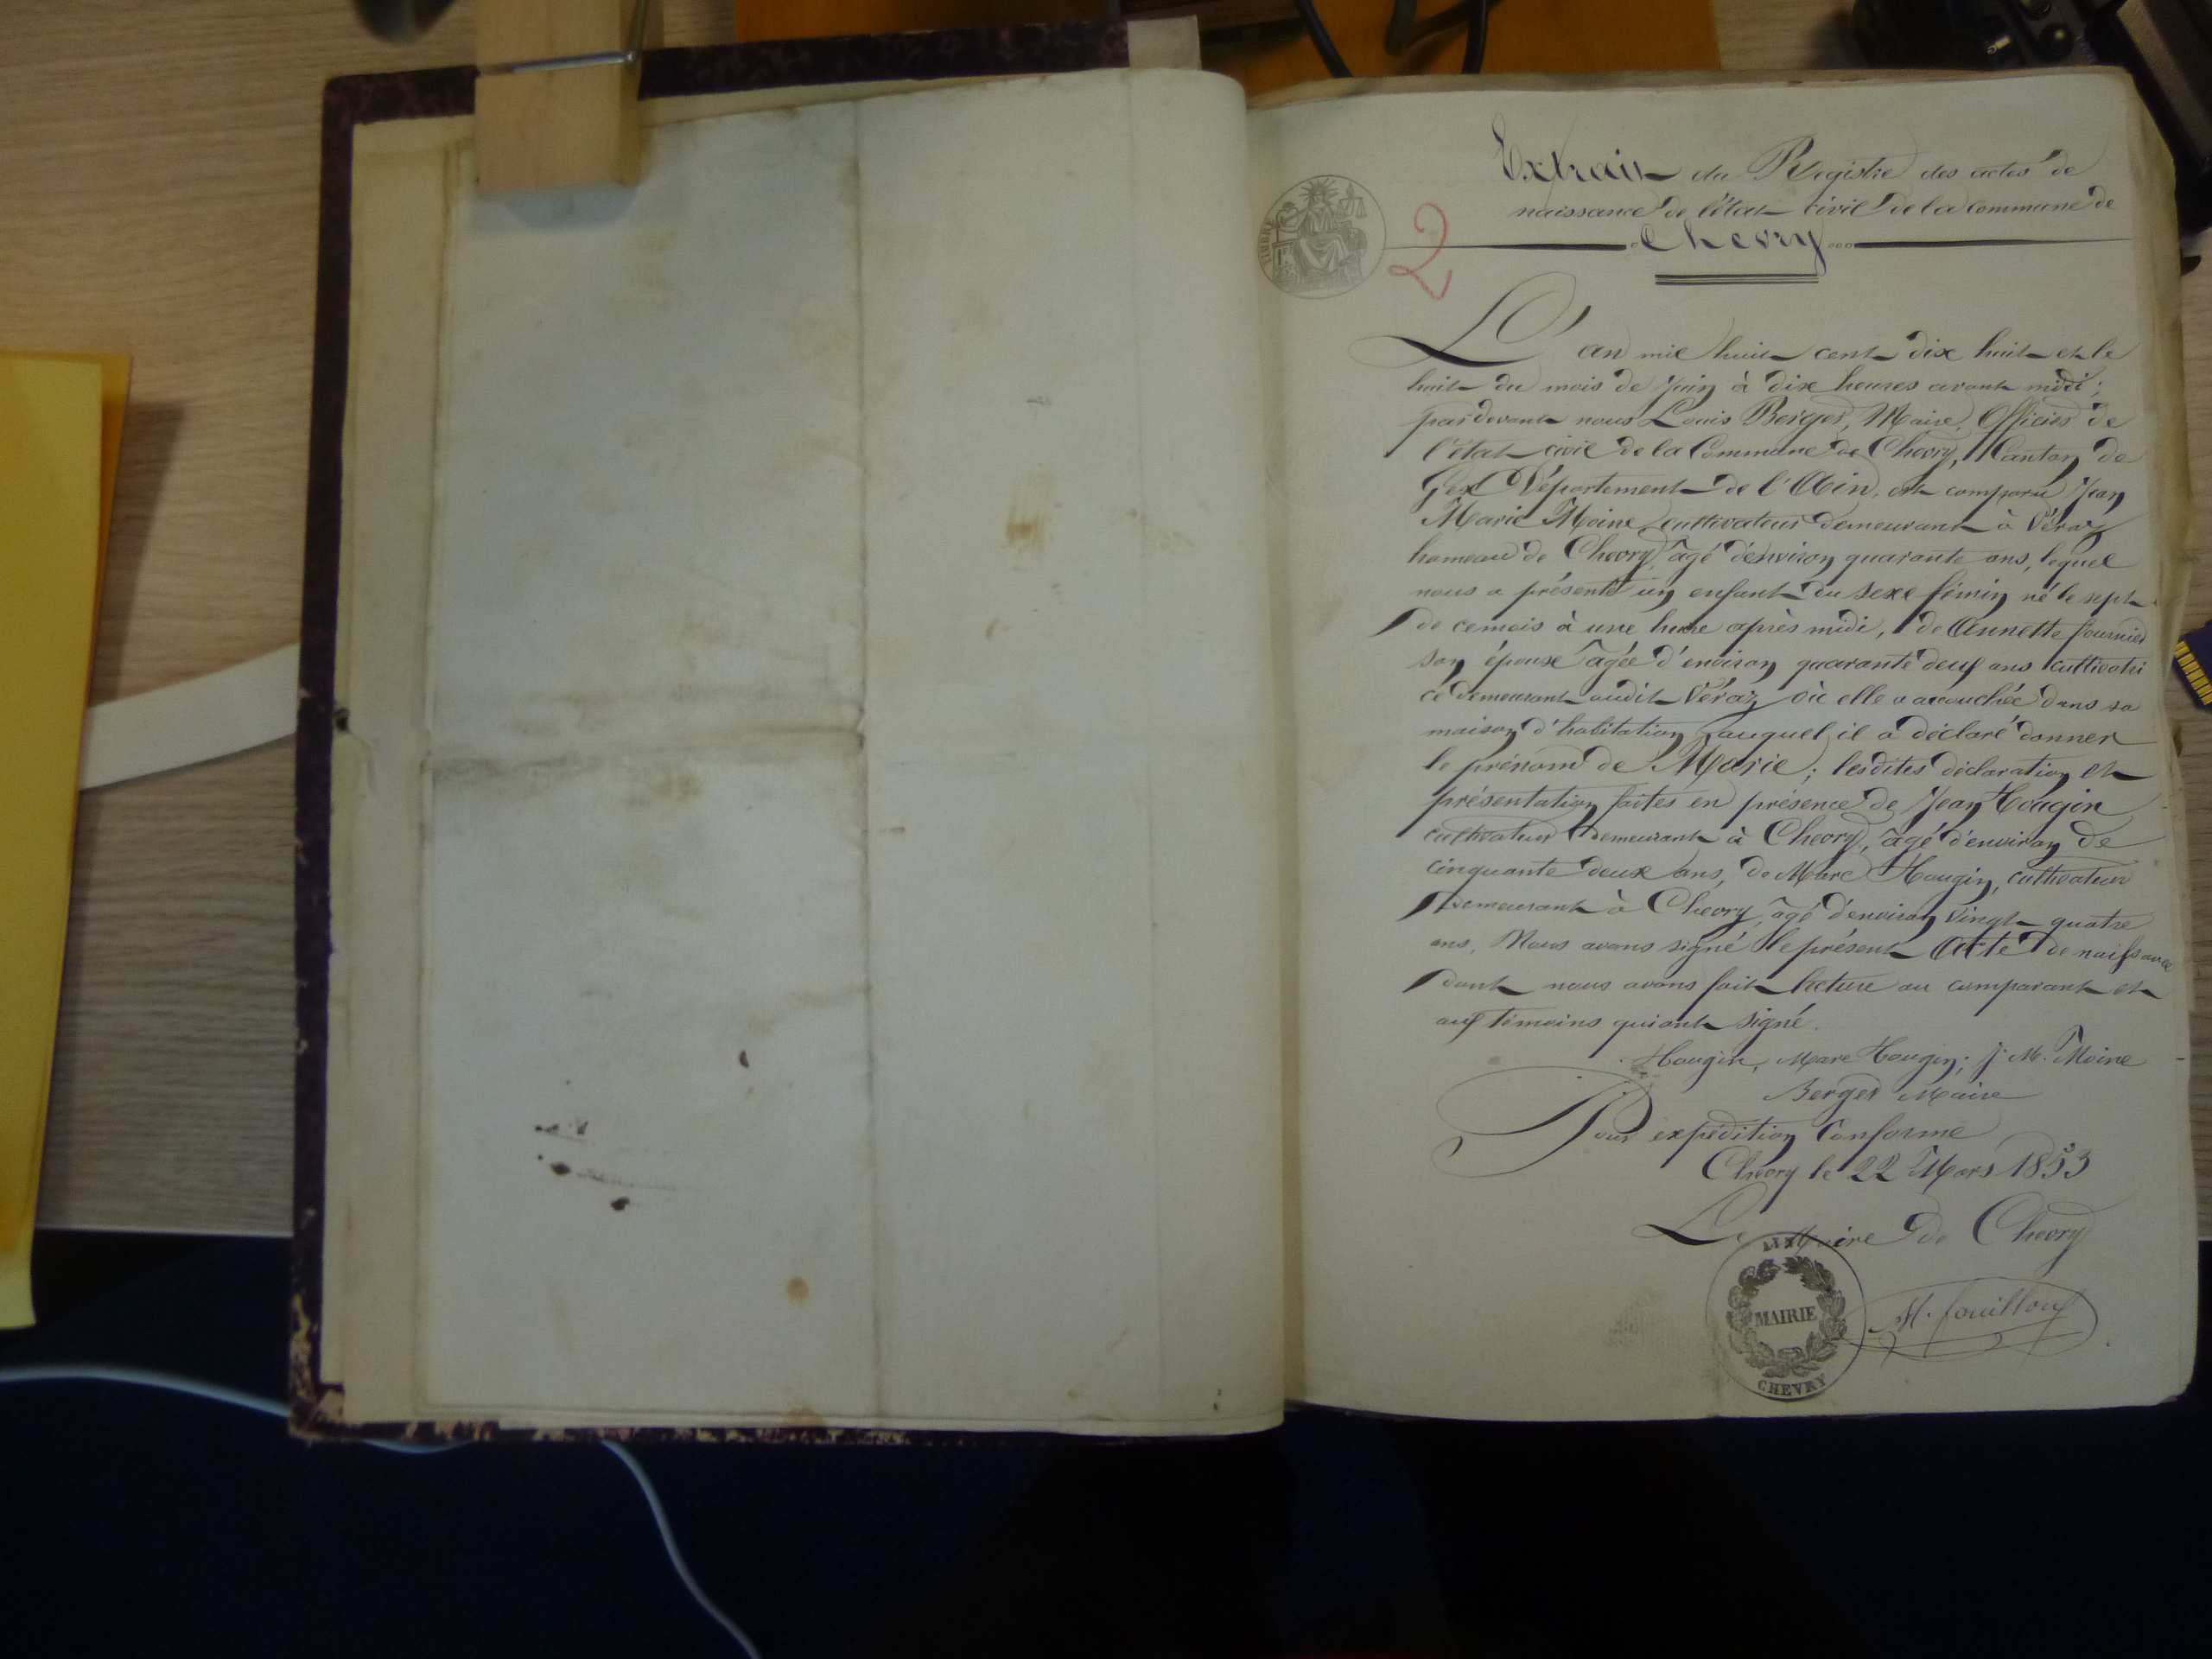 Extrait du Registre des actes de
naissance de l'état civil de la commune de
Chevry
TIMBRE
2
L'an mil huit cent dix huit et le
huit du mois de Juin à dix heures avant midi;
pardevant nous Louis Berger, Maire, Officier de
l'état civil de la Commune de Chevry, Canton de
Gex Département de l'Ain, est comparu Jean
Marie Moine cultivateur demeurant à Véraz
hameau de Chevry, âgé d'environ quarante ans, lequel
nous a présenté un enfant du sexe fémin né le sept
de ce mois à une heure après midi, de Annette fournier
son épouse âgée d'environ quarante deux ans cultivatri
ce demeurant audit Véraz où elle a accouchée dans sa
maison d'habitation, auquel il a déclaré donner
le prénom de Marie; lesdites déclaration et
présentation faites en présence de Jean Hougin
cultivateur demeurant à Chevry, âgé d'environ de
cinquante deux ans, de Marc Hougin, cultivateur
demeurant à Chevry, âgé d'environ vingt quatre
ans. Nous avons signé le présent Acte de naissance
dont nous avons fait lecture au comparant et
aux témoins qui ont signé.
Hougin, Marc Hougin; J. M. Moine
Berger Maire
Pour expédition Conforme
Chevry le 22 Mars 1853
Le Maire de Chevry
AIN
MAIRIE
CHEVRY
H. fouilloux